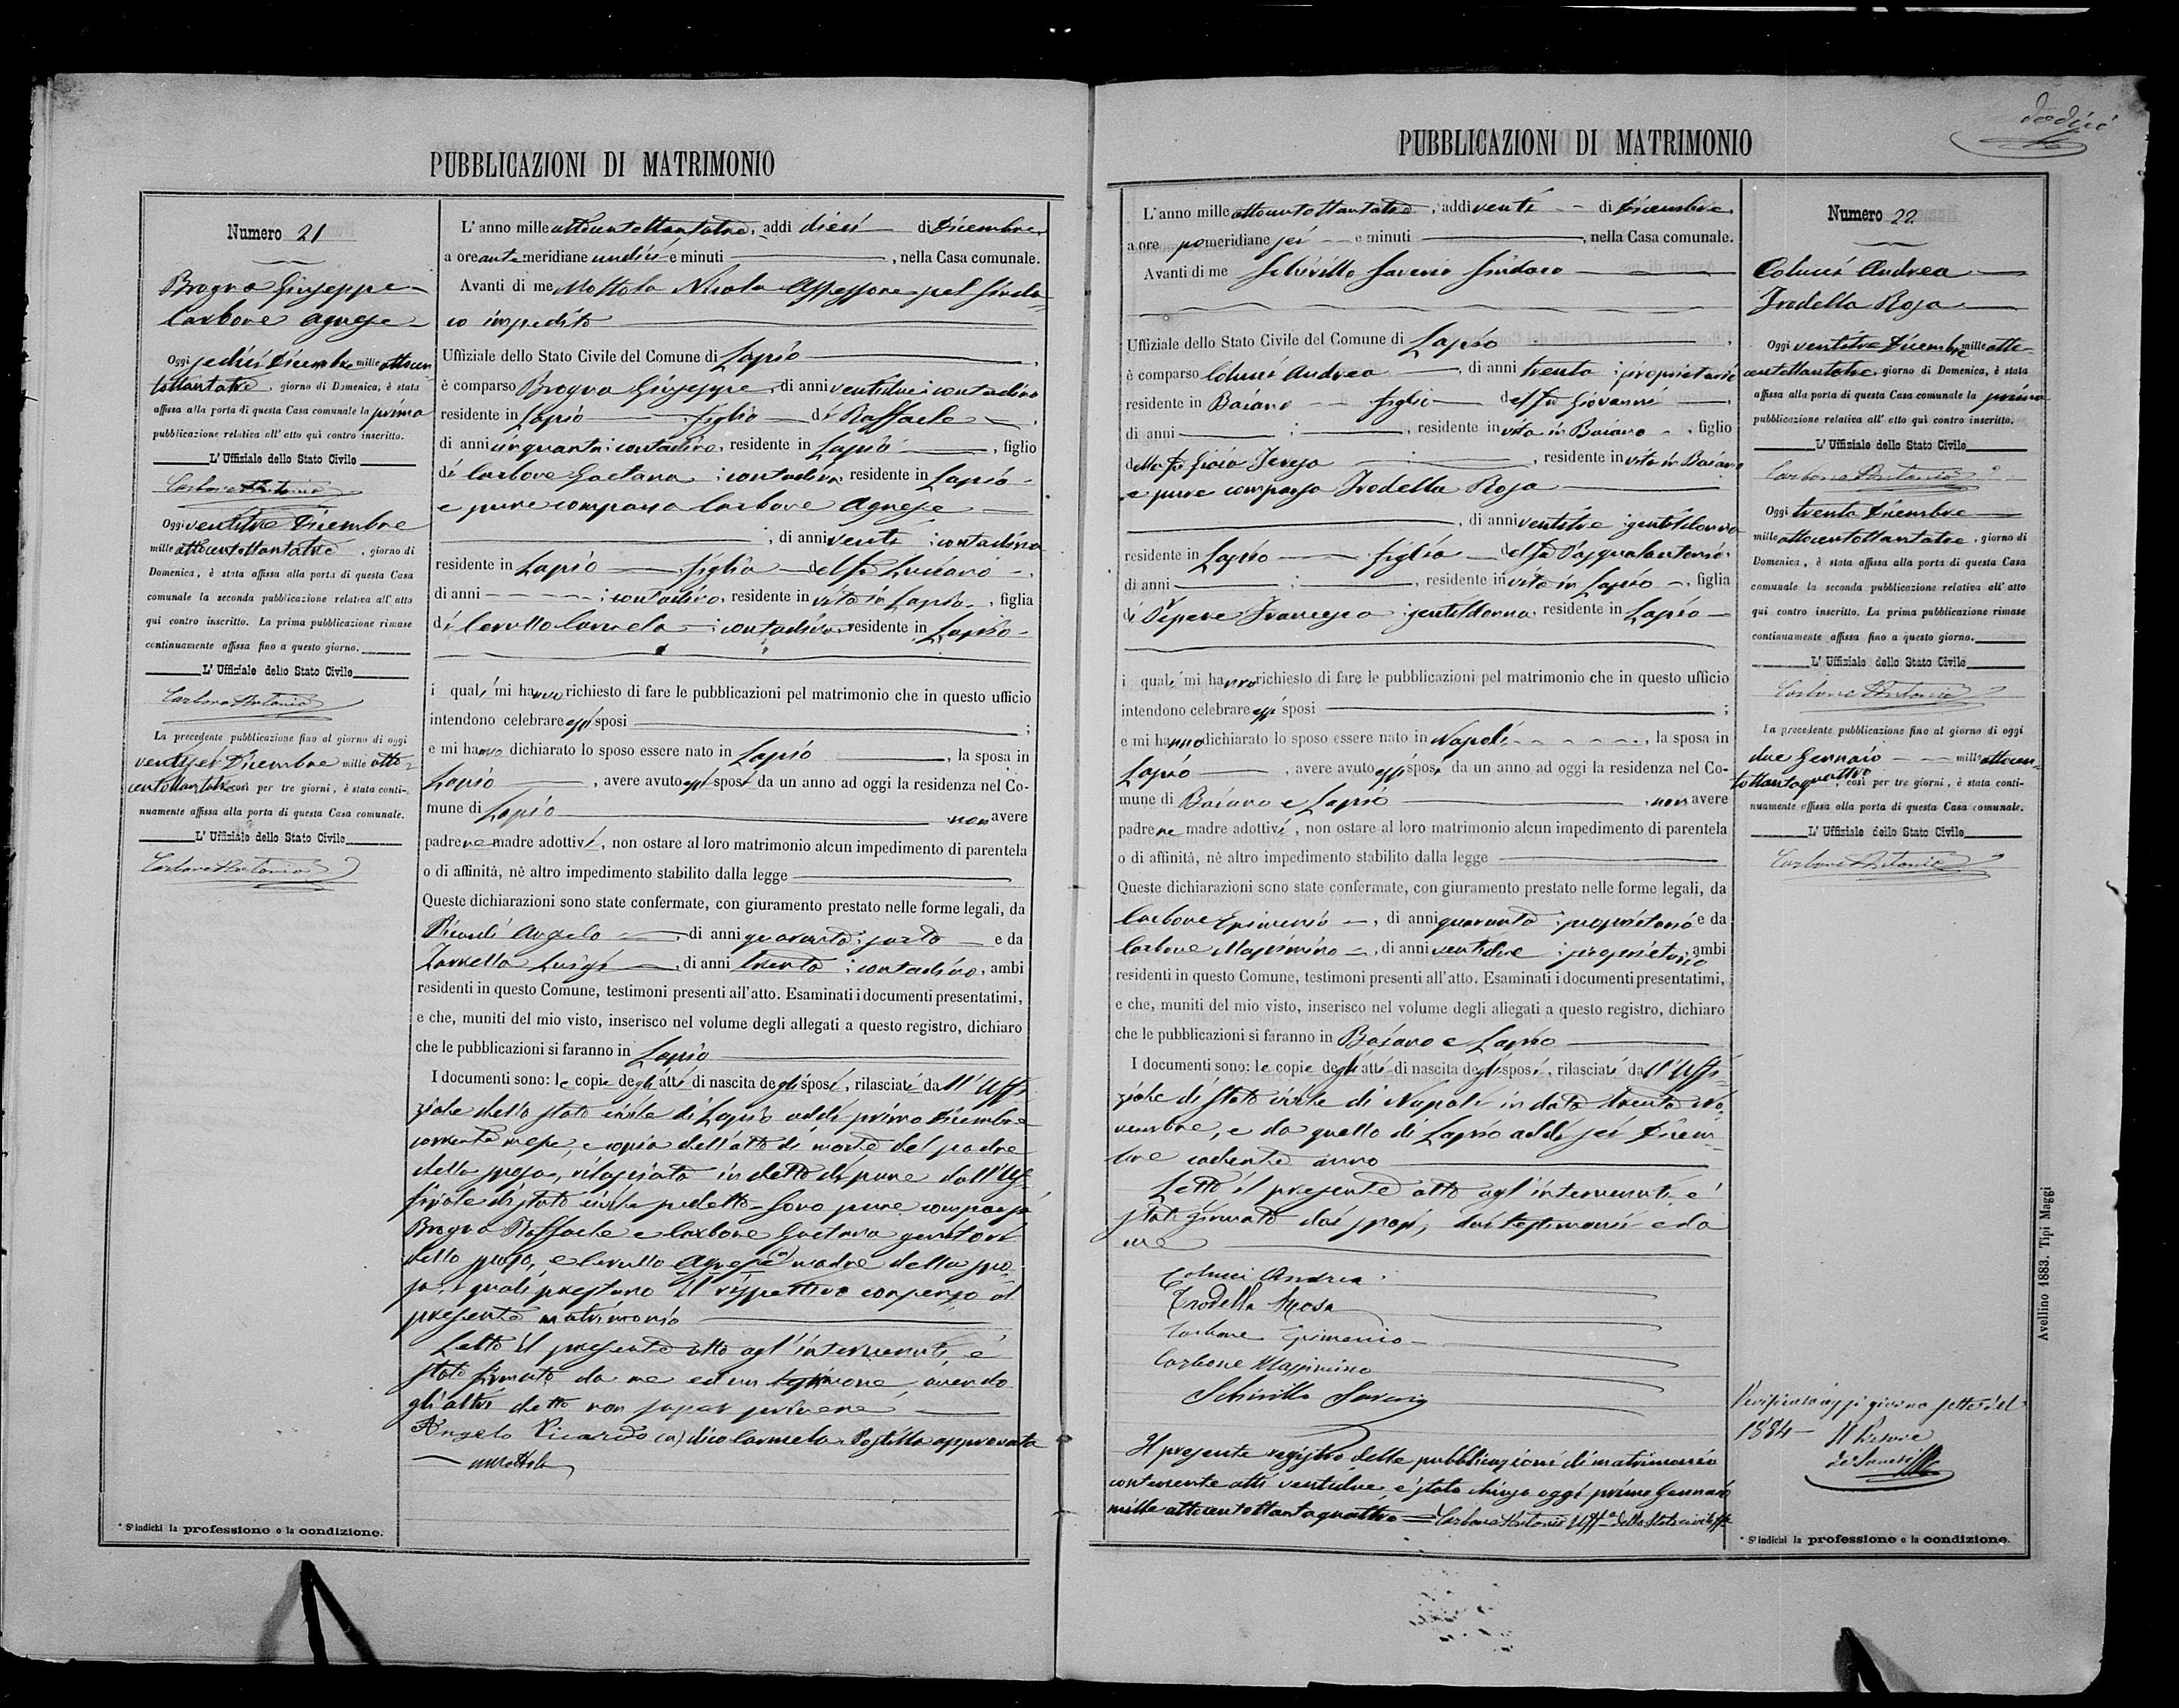 PUBBLICAZIONI DI MATRIMONIO
Numero 21
Brogna Giuseppe
Carbone Agnese
Oggi sedici Dicembre mille ottocen
tottantatre, giorno di Domenica, è stata
affissa alla porta di questa Casa comunale la prima
pubblicazione relativa all' atto quì contro inscritto.
L' Uffiziale dello Stato Civile
Carbone Antonio
Oggi ventitre Dicembre
mille ottocentottantatre, giorno di
Domenica, è stata affissa alla porta di questa Casa
comunale la seconda pubblicazione relativa all' atto
qui contro inscritto. La prima pubblicazione rimase
continuamente affissa fino a questo giorno.
L' Uffiziale dello Stato Civile
Carbone Antonio
La precedente pubblicazione fino al giorno di oggi
ventisei Dicembre mille otto-
centottantatre così per tre giorni, è stata conti-
nuamente affissa alla porta di questa Casa comunale.
L' Uffiziale dello Stato Civile
Carbone Antonio
* S' indichi la professione e la condizione.
L' anno mille ottocentottantatre, addi dieci di Dicembre,
a ore antemeridiane undici e minuti , nella Casa comunale.
Avanti di me Mottola Nicola Assessore pel Sinda-
co impedito
Uffiziale dello Stato Civile del Comune di Lapio ,
è comparso Brogna Giuseppe, di anni ventidue; contadino
residente in Lapio figlio di Raffaele ,
di anni cinquanta; contadino, residente in Lapio , figlio
di Carbone Gaetana ; contadina, residente in Lapio
e pure comparsa Carbone Agnese
, di anni venti ; contadina
residente in Lapio figlia del fu Luciano
di anni ; contadino, residente in vita in Lapio, figlia
di Cerullo Carmela ; contadina, residente in Lapio
i quali mi hanno richiesto di fare le pubblicazioni pel matrimonio che in questo ufficio
intendono celebrare essi sposi ;
e mi hanno dichiarato lo sposo essere nato in Lapio , la sposa in
Lapio , avere avuto essi sposi da un anno ad oggi la residenza nel Co-
mune di Lapio , non avere
padre ne madre adottivi, non ostare al loro matrimonio alcun impedimento di parentela
o di affinità, nè altro impedimento stabilito dalla legge
Queste dichiarazioni sono state confermate, con giuramento prestato nelle forme legali, da
Angelo , di anni quaranta; e da
Luigi , di anni trenta ; contadino, ambi
residenti in questo Comune, testimoni presenti all' atto. Esaminati i documenti presentatimi,
e che, muniti del mio visto, inserisco nel volume degli allegati a questo registro, dichiaro
che le pubblicazioni si faranno in Lapio
I documenti sono: le copie degli atti di nascita degli sposi, rilasciati dall' Uffi-
ziale dello stato civile di Lapio addi primo Dicembre
corrente mese, e copia dell' atto di morte del padre
della sposa, rilasciata in detto dì pure dall' Uf-
fiziale di stato civile predetto. Sono pure comparsi
Brogna Raffaele e Carbone Gaetana genitori
dello sposo, e Cerullo Agnese (a) madre della spo-
sa, i quali prestano il rispettivo consenso al
presente matrimonio
Letto il presente atto agl' intervenuti, è
stato firmato da me ed un testimone, avendo
gli altri detto non saper scrivere
Angelo Picardo (a) dico Carmela. Postilla approvata
PUBBLICAZIONI DI MATRIMONIO
dodici
L' anno mille ottocentottantatre, addi venti di Dicembre,
a ore pomeridiane sei e minuti , nella Casa comunale.
Avanti di me Schirillo Saverio Sindaco
Uffiziale dello Stato Civile del Comune di Lapio ,
è comparso Colucci Andrea , di anni trenta ; proprietario
residente in Baiano figlio del fu Giovanni ,
di anni ; , residente in vita in Baiano , figlio
della fu Gioia Teresa , residente in vita in Baiano
e pure comparsa Trodella Rosa
, di anni ventitre ; gentildonna
residente in Lapio figlia del fu Pasqualantonio
di anni ; , residente in vita in Lapio , figlia
di Pepere Francesca ; gentildonna, residente in Lapio
i quali mi hanno richiesto di fare le pubblicazioni pel matrimonio che in questo ufficio
intendono celebrare essi sposi ;
e mi hanno dichiarato lo sposo essere nato in Napoli , la sposa in
Lapio , avere avuto essi sposi da un anno ad oggi la residenza nel Co-
mune di Baiano e Lapio , non avere
padre ne madre adottivi, non ostare al loro matrimonio alcun impedimento di parentela
o di affinità, nè altro impedimento stabilito dalla legge
Queste dichiarazioni sono state confermate, con giuramento prestato nelle forme legali, da
Carbone Epimenio , di anni quaranta ; proprietario e da
Carbone Massimino , di anni ventidue ; proprietario, ambi
residenti in questo Comune, testimoni presenti all' atto. Esaminati i documenti presentatimi,
e che, muniti del mio visto, inserisco nel volume degli allegati a questo registro, dichiaro
che le pubblicazioni si faranno in Baiano e Lapio
I documenti sono: le copie degli atti di nascita degli sposi, rilasciati dall' Uffi-
ziale di stato civile di Napoli in data trenta No-
vembre, e da quello di Lapio addi sei Dicem-
bre cadente anno
Letto il presente atto agl' intervenuti, è
stato firmato dai sposi, dai testimonii e da
me
Colucci Andrea
Trodella Rosa
Carbone Epimenio
Carbone Massimino
Schirillo Saverio
Il presente registro delle pubblicazioni di matrimonio
contenente atti ventidue è stato chiuso oggi primo Gennaio
mille ottocentottantaquattro = Carbone Antonio Uff.le dello Stato civile
Numero 22
Colucci Andrea
Trodella Rosa
Oggi ventitre Dicembre mille otto-
centottantatre, giorno di Domenica, è stata
affissa alla porta di questa Casa comunale la prima
pubblicazione relativa all' atto quì contro inscritto.
L' Uffiziale dello Stato Civile
Carbone Antonio
Oggi trenta Dicembre
mille ottocentottantatre, giorno di
Domenica, è stata affissa alla porta di questa Casa
comunale la seconda pubblicazione relativa all' atto
qui contro inscritto. La prima pubblicazione rimase
continuamente affissa fino a questo giorno.
L' Uffiziale dello Stato Civile
Carbone Antonio
La precedente pubblicazione fino al giorno di oggi
due Gennaio mille ottocen-
tottantaquattro, così per tre giorni, è stata conti-
nuamente affissa alla porta di questa Casa comunale.
L' Uffiziale dello Stato Civile
Carbone Antonio
oggi giorno sette del
1884 Il Pretore
* S' indichi la professione e la condizione.
Avellino 1883. Tipi Maggi